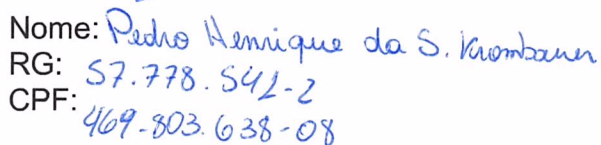 Nome: Pedro Henrique da S. Krombauer
RG: 57.778.542-2
CPF: 469.803.638-08